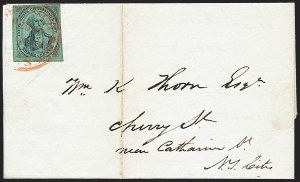 Wm K Thorn Esqr
Cherry St
near Catharin St
N.Y. City